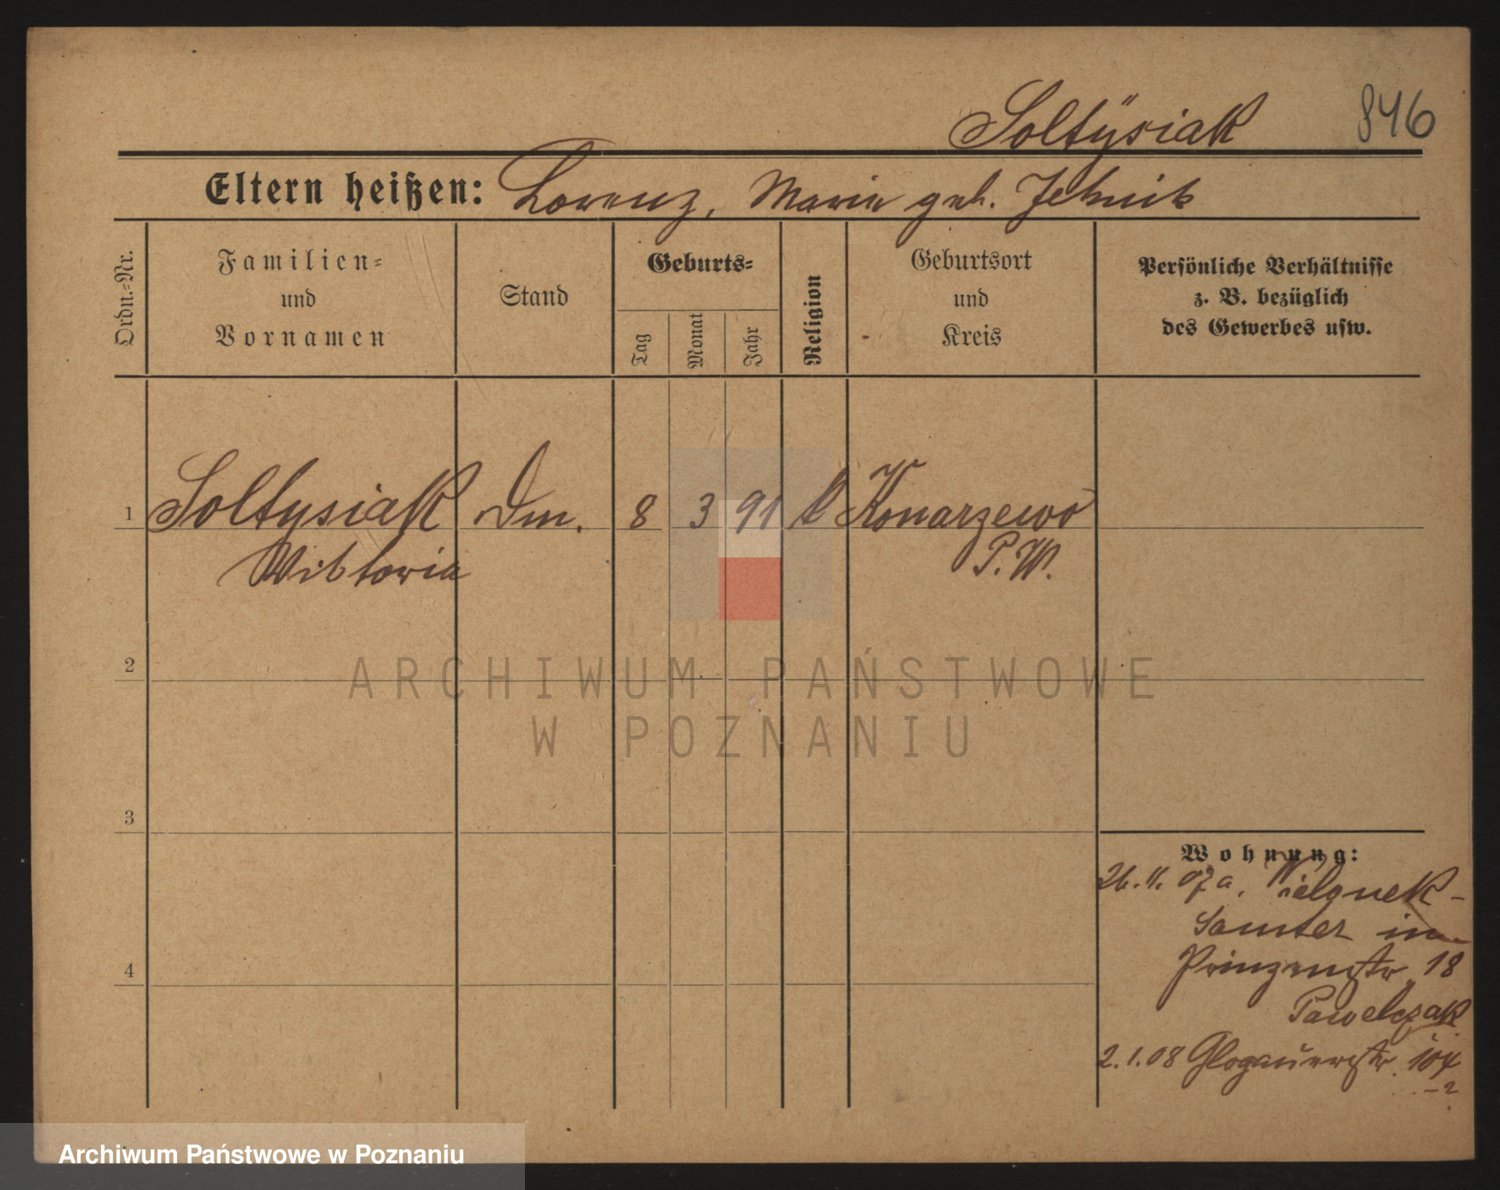 Soltÿsiak 846
Eltern heißen: Lorenz, Marie geb.
Ordn.-Nr.
Familien-
und
Vornamen
Stand
Geburts-
Tag
Monat
Jahr
Religion
Geburtsort
und
Kreis
Persönliche Verhältnisse
z. B. bezüglich
des Gewerbes usw.
1 Soltysiak Dm. 8 3 91 k Konarzewo
Wiktoria P. W.
2
3
4
Wohnung:
26. 11. 07 a.
Samter in
Prinzenstr. 18
Pawelczak
2.1.08 Glogauerstr. 104
ARCHIWUM PAŃSTWOWE
W POZNANIU
Archiwum Państwowe w Poznaniu